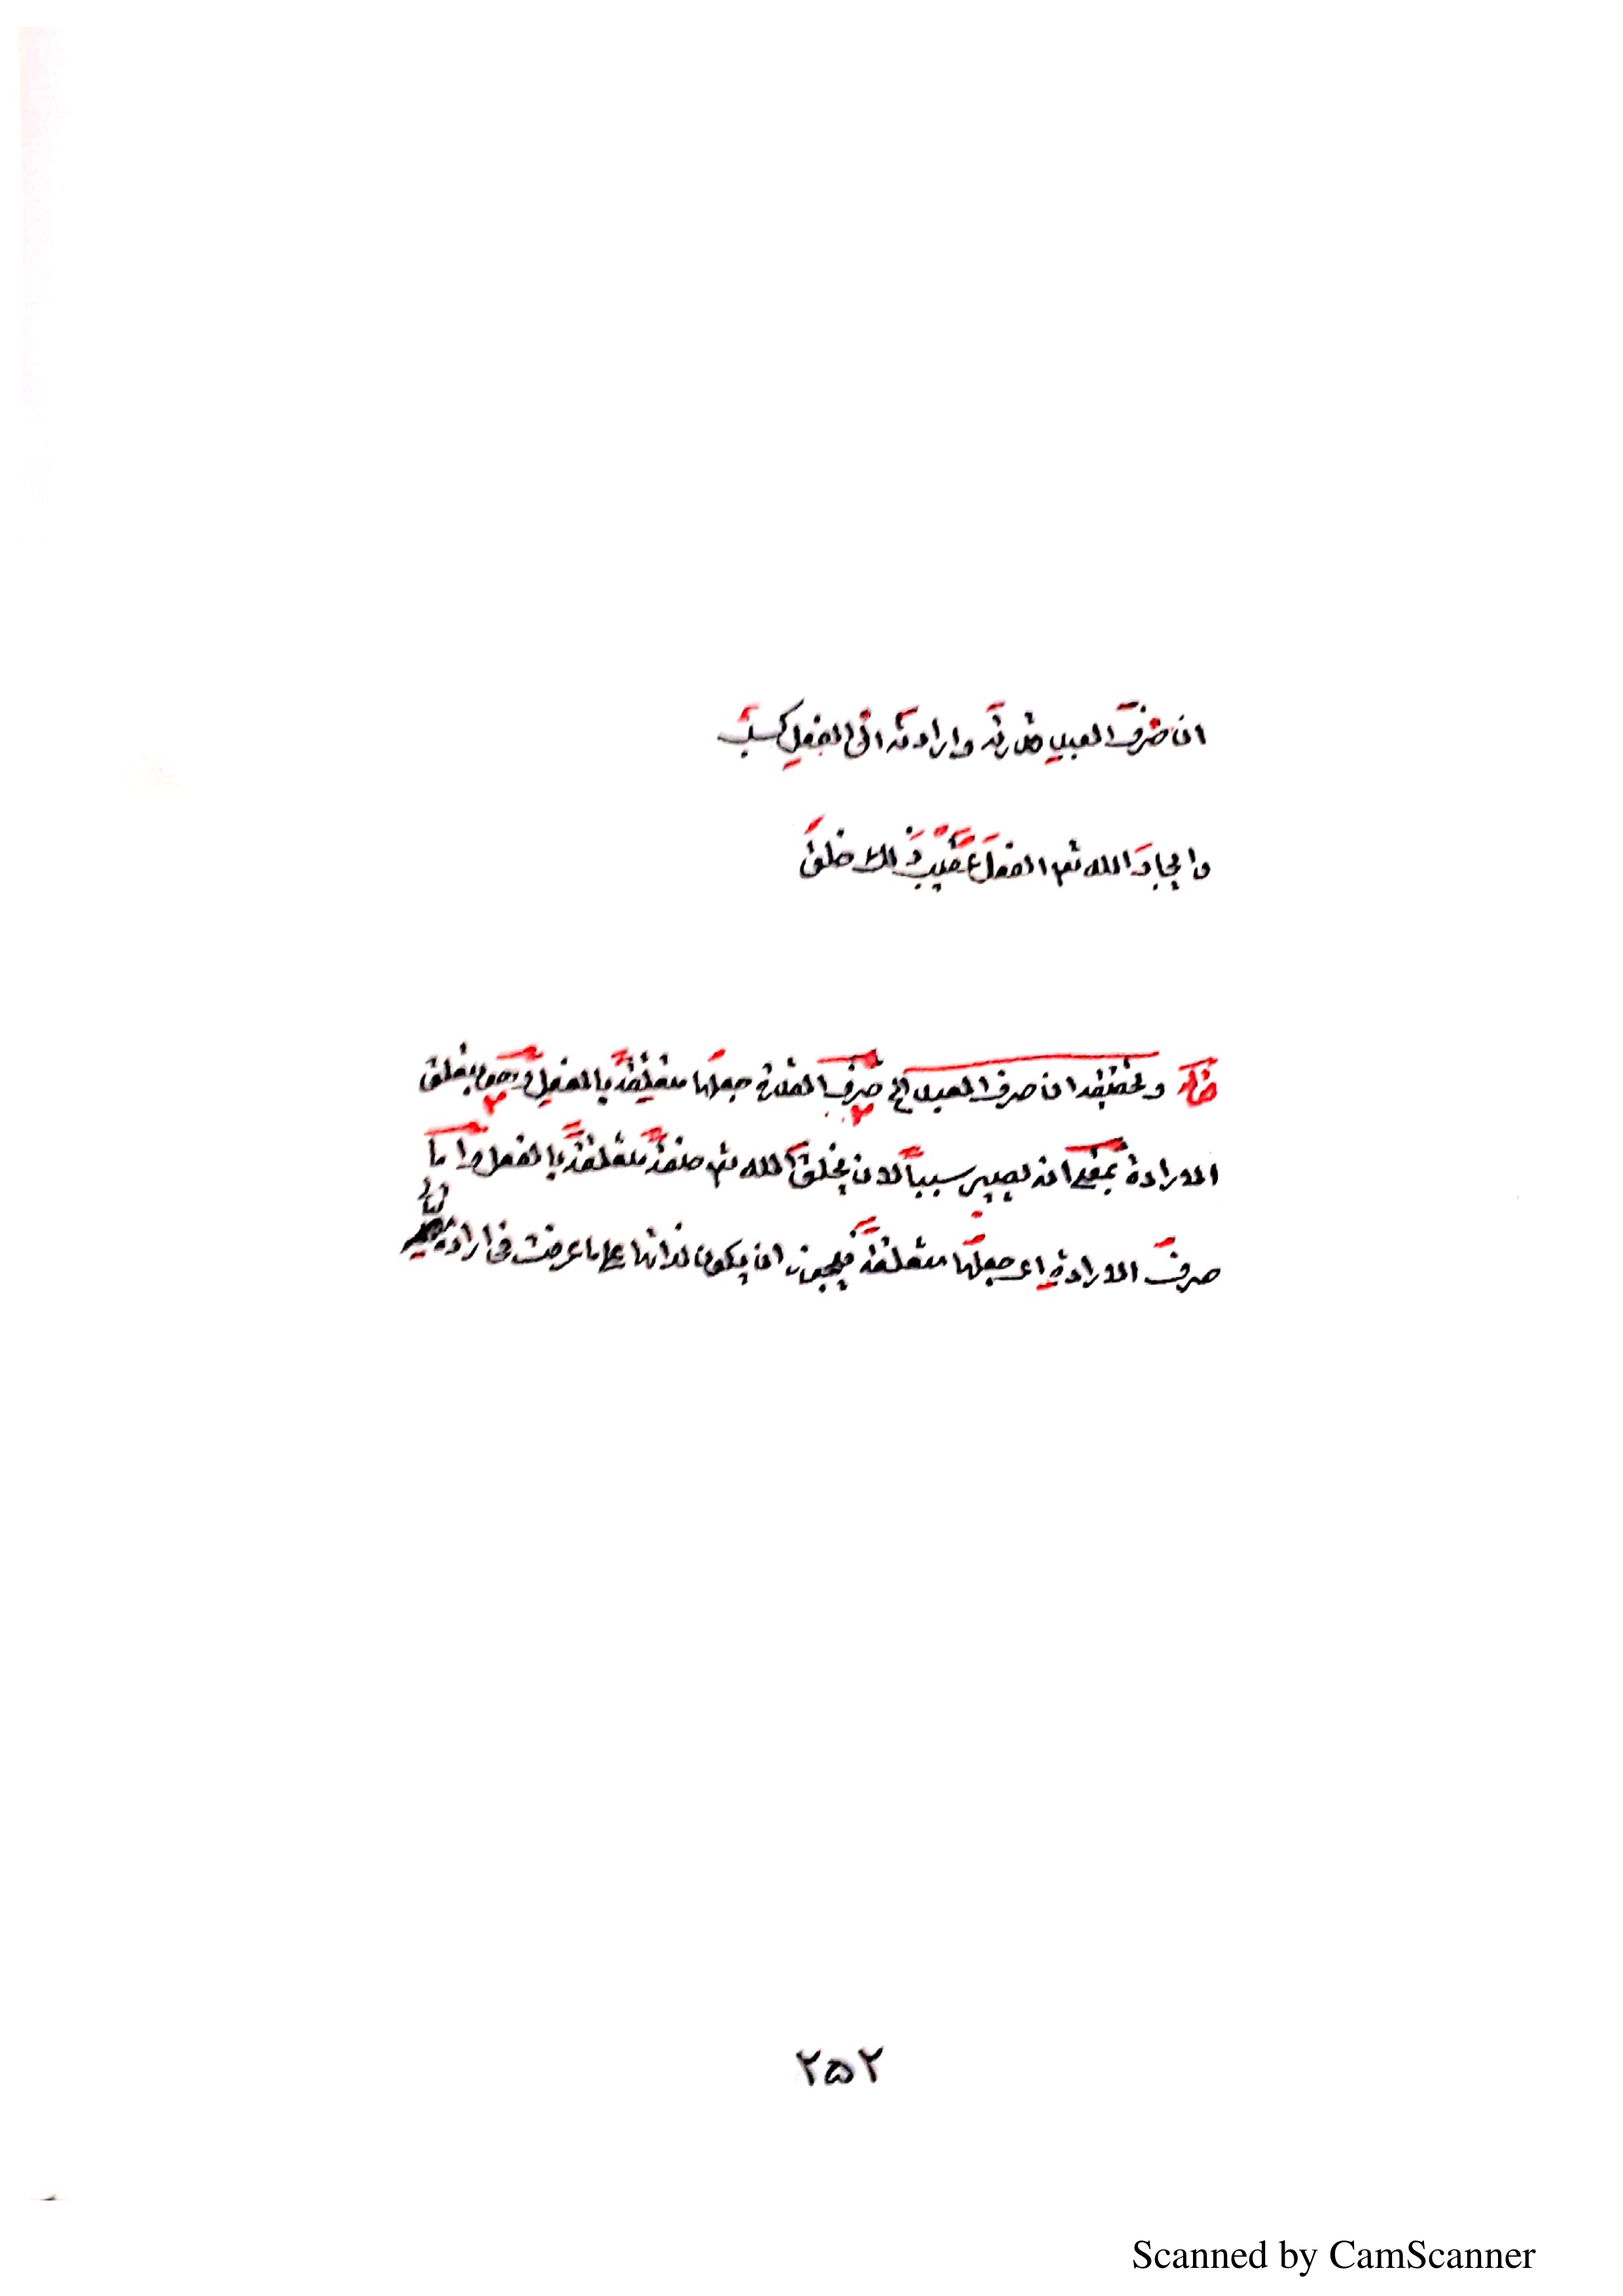 ان صرفَ العبد قدرتَه وارادتَه الى الفعلِ كسبٌ
وايجادَ الله تعہ الفعلَ عَقِيْبَ ذٰلك خلقٌ
وتحقيقه ان صرف العبد الخ صرفَ القدرة جعلُها متعلقةً بالفعلِ و بتعلق
الارادة بمعنى انه يصير سبباً لان يخلقَ الله تعہ صفةً متعلقةً بالفعل واما
صرفُ الارادةِ اى جعلُها متعلقةً فيجوز ان يكون لذاتها على ما عرفت فى ارادة
٢٥٢
Scanned by CamScanner